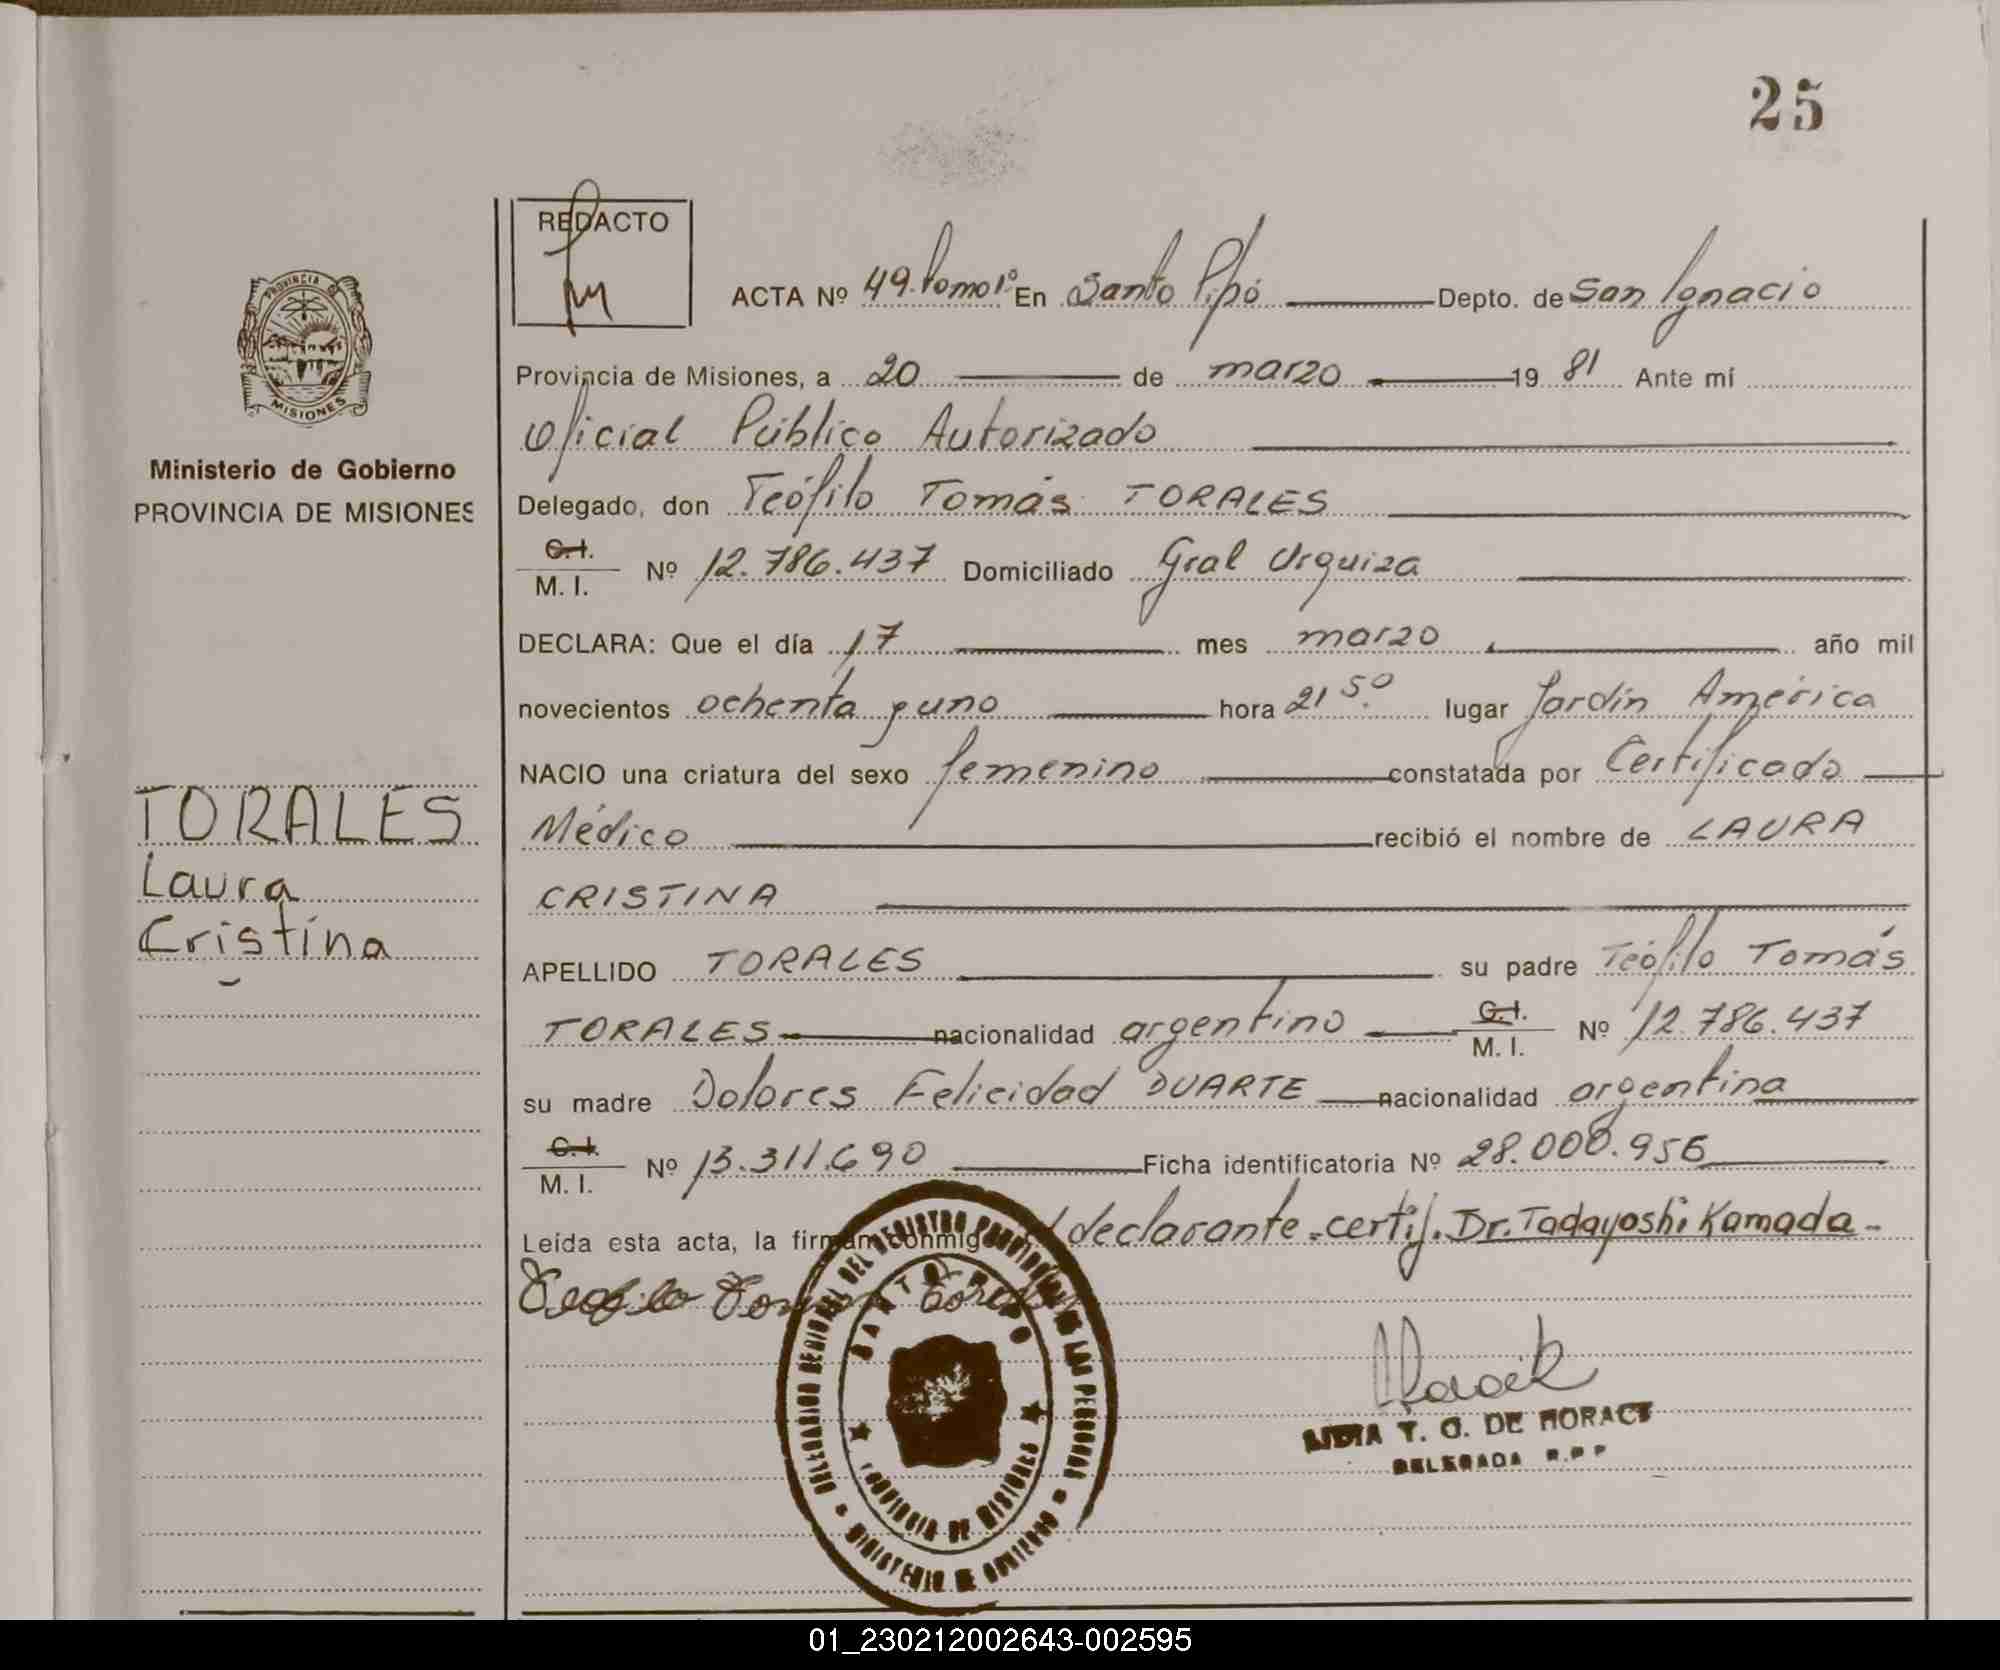 25
REDACTO
ACTA Nº 49. Tomo 1º En Santo Pipó Depto. de San Ignacio
Provincia de Misiones, a 20 de marzo 19 81 Ante mí
Oficial Público Autorizado
Delegado, don Teófilo Tomás TORALES
C.I.
M. I. Nº 12.786.437 Domiciliado Gral Urquiza
DECLARA: Que el día 17 mes marzo año mil
novecientos ochenta y uno hora 21 50. lugar Jardín América
NACIO una criatura del sexo femenino constatada por Certificado
Médico recibió el nombre de LAURA
CRISTINA
APELLIDO TORALES su padre Teófilo Tomás
TORALES nacionalidad argentino C.I.
M. I. Nº 12.786.437
su madre Dolores Felicidad DUARTE nacionalidad argentina
C.I.
M. I. Nº 13.311.690 Ficha identificatoria Nº 28.000.956
Leída esta acta, la firman conmigo declarante. certif. Dr. Tadayoshi Kamada-
Teofilo Tomas Torales
PROVINCIA
MISIONES
Ministerio de Gobierno
PROVINCIA DE MISIONES
TORALES
Laura
Cristina
DEL REGISTRO PROVINCIAL DE LAS PERSONAS
SANTO PIPO
PROVINCIA DE MISIONES
MINISTERIO DE GOBIERNO
LIDIA T. G. DE HORACK
DELEGADA R.P.P
01_230212002643-002595